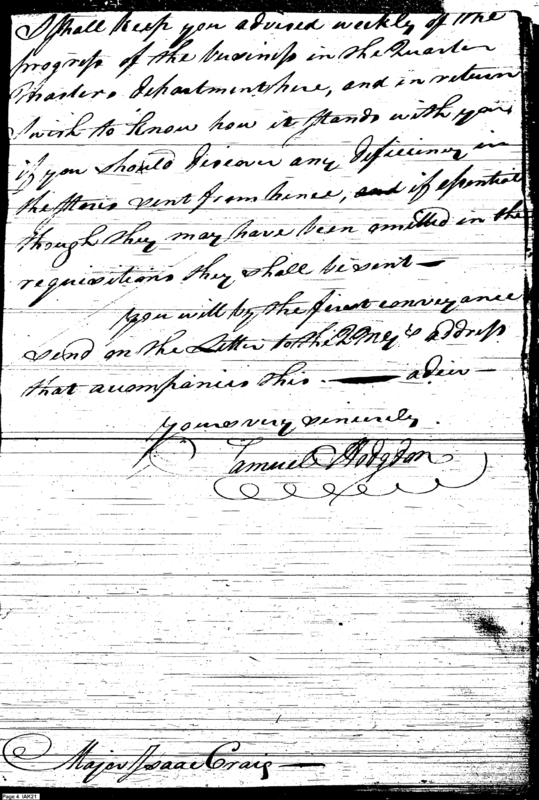 I shall keep you advised weekly of the
progress of the business in the Quarter
Masters department here, and in return
I wish to know how it stands with you,
if you should discover any deficiency in
the stores sent from hence, and if essential
though they may have been omitted in the
requisitions they shall be sent —
you will by the first conveyance
send on the Letter to the QMGs address
that acompanies this. — adieu —
yours very sincerely.
Samuel Hodgdon
Major Isaac Craig —
Page 4 IAK21